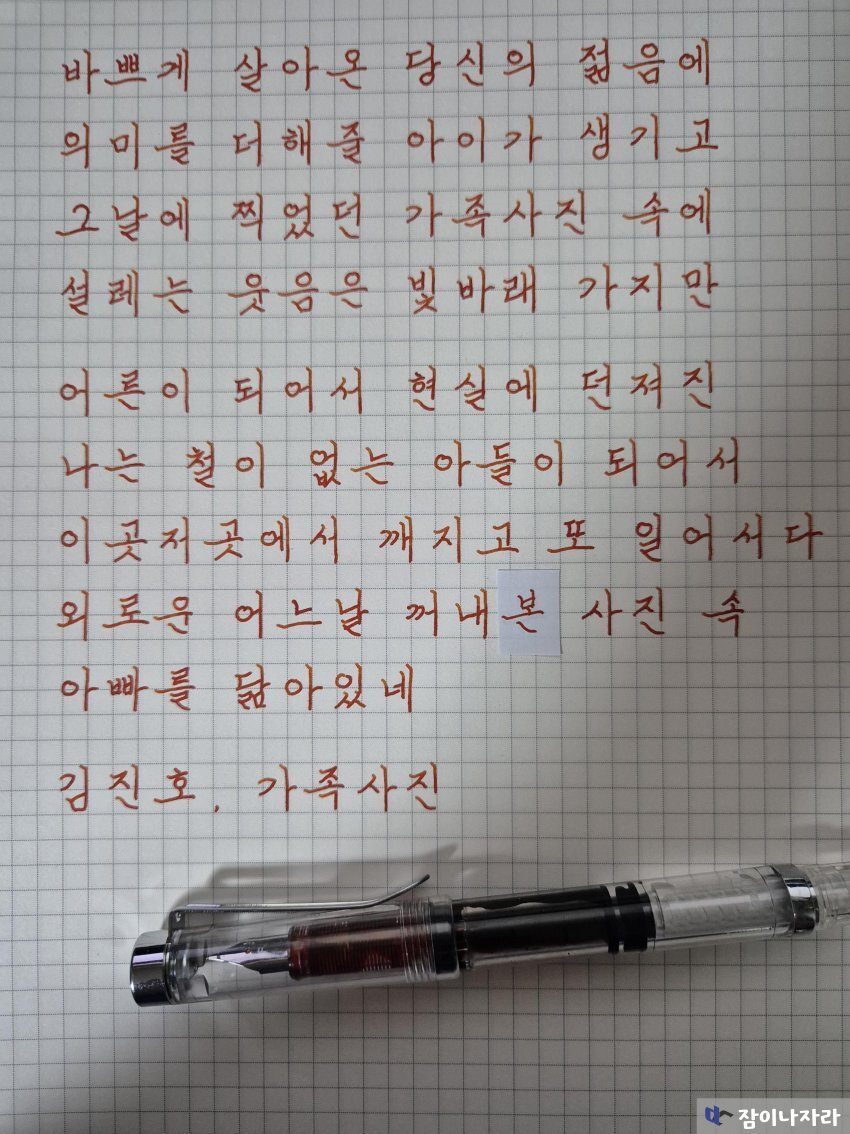 바쁘게 살아온 당신의 젊음에
의미를 더해줄 아이가 생기고
그날에 찍었던 가족사진 속에
설레는 웃음은 빛바래 가지만
어른이 되어서 현실에 던져진
나는 철이 없는 아들이 되어서
이곳저곳에서 깨지고 또 일어서다
외로운 어느날 꺼내본 사진 속
아빠를 닮아있네
김진호, 가족사진
잠이나자라